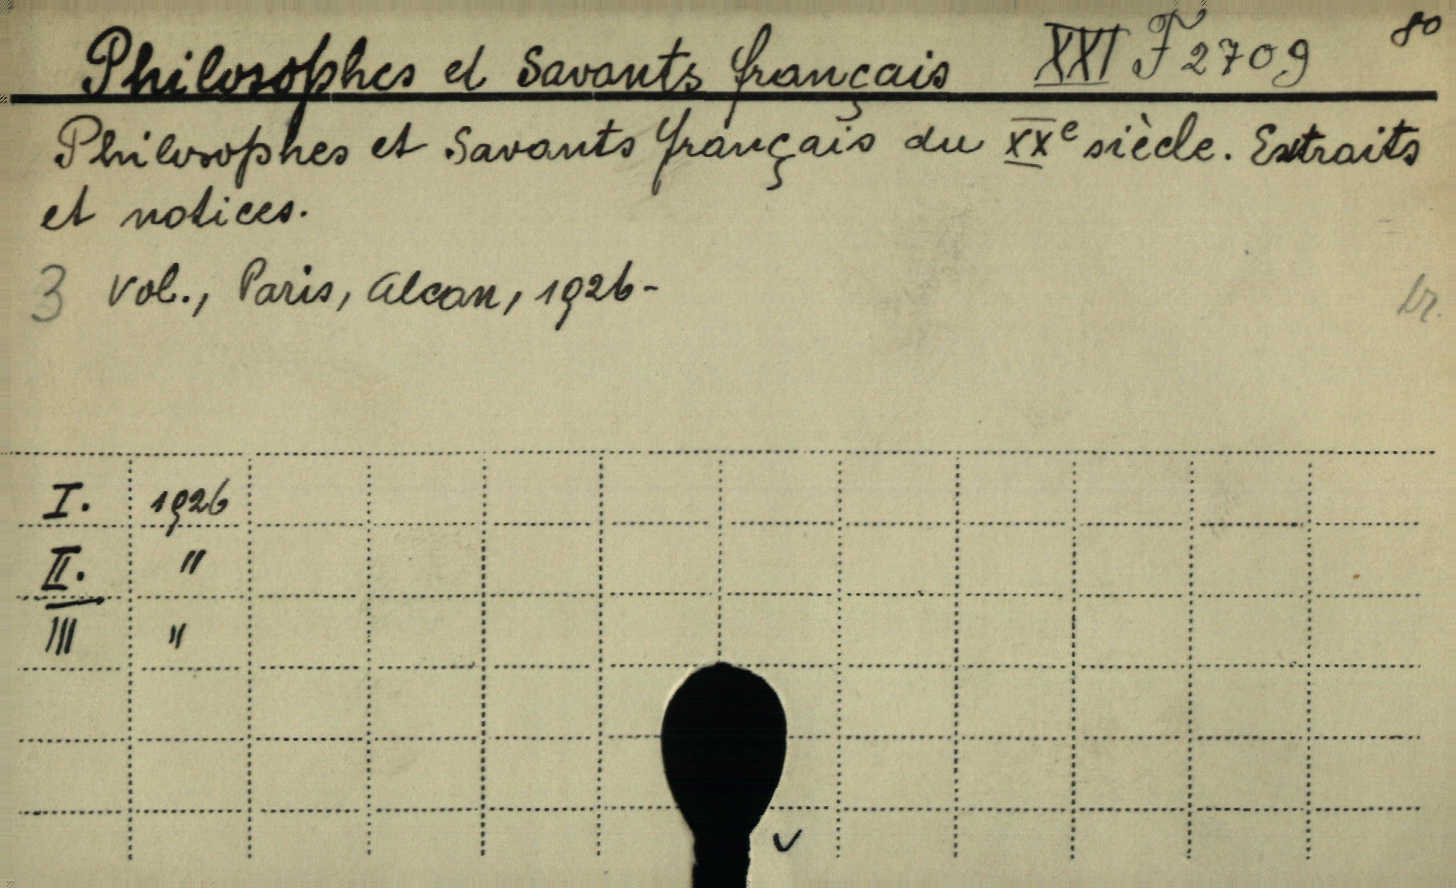 Philosophes et Savants français XXI F 2709 80
Philosophes et Savants français du XXe siècle. Extraits
et notices.
3 vol., Paris, Alcan, 1926-
I. 1926
II. "
III "